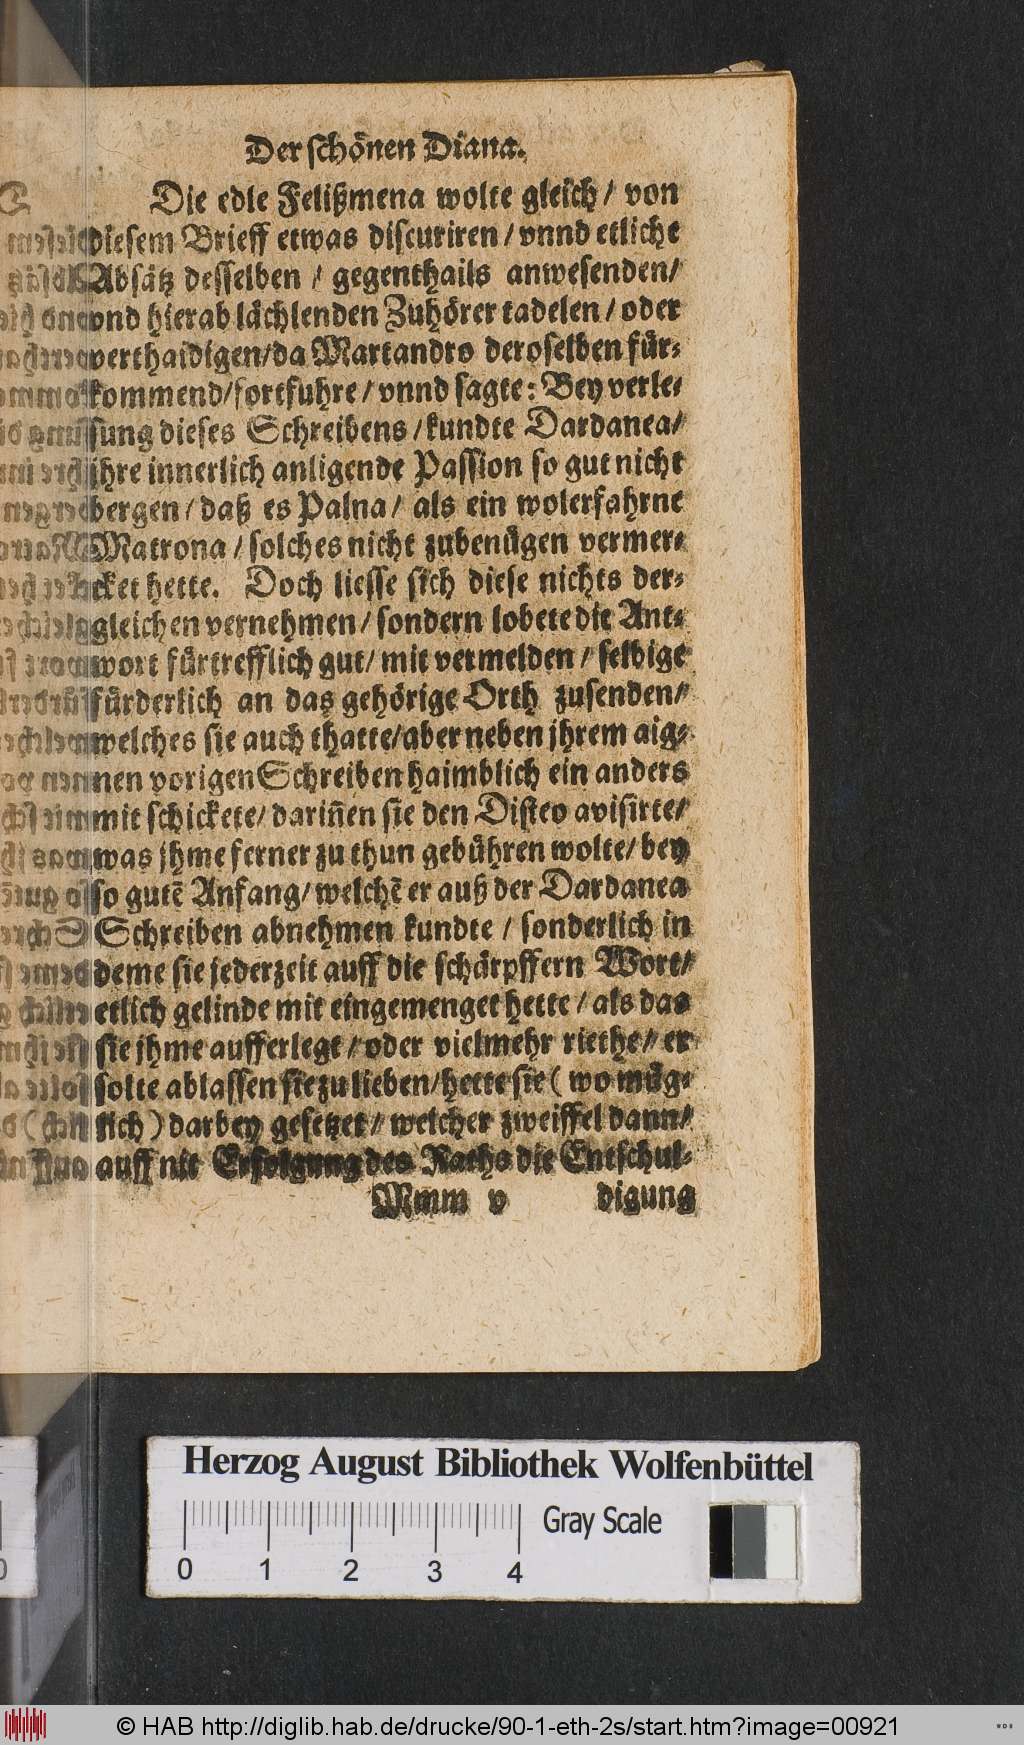 Der schönen Diana.
Die edle Felißmena wolte gleich / von
diesem Brieff etwas discuriren / vnnd etliche
Absätz desselben / gegenthails anwesenden /
vnd hierab lächlenden Zuhörer tadelen / oder
verthaidigen / da Martandro deroselben für-
kommend / fortfuhre / vnnd sagte: Bey verle-
sung dieses Schreibens / kundte Dardanea /
jhre innerlich anligende Passion so gut nicht
bergen / daß es Palna / als ein wolerfahrne
Matrona / solches nicht zubenügen vermer-
cket hette. Doch liesse sich diese nichts der-
gleichen vernehmen / sondern lobete die Ant-
wort fürtrefflich gut / mit vermelden / selbige
fürderlich an das gehörige Orth zusenden /
welches sie auch thatte / aber neben jhrem aig-
nen vorigen Schreiben haimblich ein anders
mit schickete / dariñen sie den Disteo avisirte /
was jhme ferner zu thun gebühren wolte / bey
so gutē Anfang / welchē er auß der Dardanea
Schreiben abnehmen kundte / sonderlich in
deme sie jederzeit auff die schärpffern Wort /
etlich gelinde mit eingemenget hette / als das
sie jhme aufferlegt / oder vielmehr riethe / er
solte ablassen sie zu lieben / hette sie ( wo müg-
lich ) darbey gesetzet / welcher zweiffel dann /
auff nit Erfolgung des Raths die Entschul-
Mmm v digung
Herzog August Bibliothek Wolfenbüttel
0 1 2 3 4 Gray Scale
© HAB http://diglib.hab.de/drucke/90-1-eth-2s/start.htm?image=00921